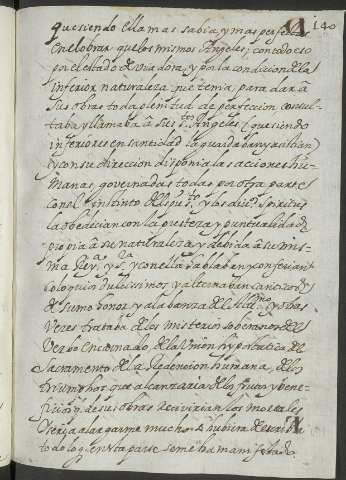 140
que siendo ella mas sabia, y mas perfecta
en el obrar que los mismos Angeles; con todo eso
por el estado de viadora, y por la condicion de la
inferior naturaleza; nic tenia, para dar â
sus obras toda plenitud de perfeccion consul
taba y llamaba â sus stos Angeles (que siendo
inferiores en santidad la guardaban y asistian)
y con su direccion disponia las acciones hu-
manas, governadas todas por otra parte
con el instinto del Sptu sto y los divs Spiritus
la obedecian con la presteza y puntualidad
propia â su naturaleza y debida â su mis-
ma Reya y Sra y con ella hablaban y conferian
coloquios dulcissimos y alternaban canticos
de sumo honor y alabanza del Altmo y otras
veces trataba de los misterios soberanos del
Verbo encarnado de la Union hypostatica del
Sacramento de la Redencion humana, de los
triumphos que alcanzaria, de los frutos y bene-
ficios q de sus obras recivirian los mortales
Y seria alargarme mucho si hubiera de escribir
todo lo q en esta parte se me ha manifestado